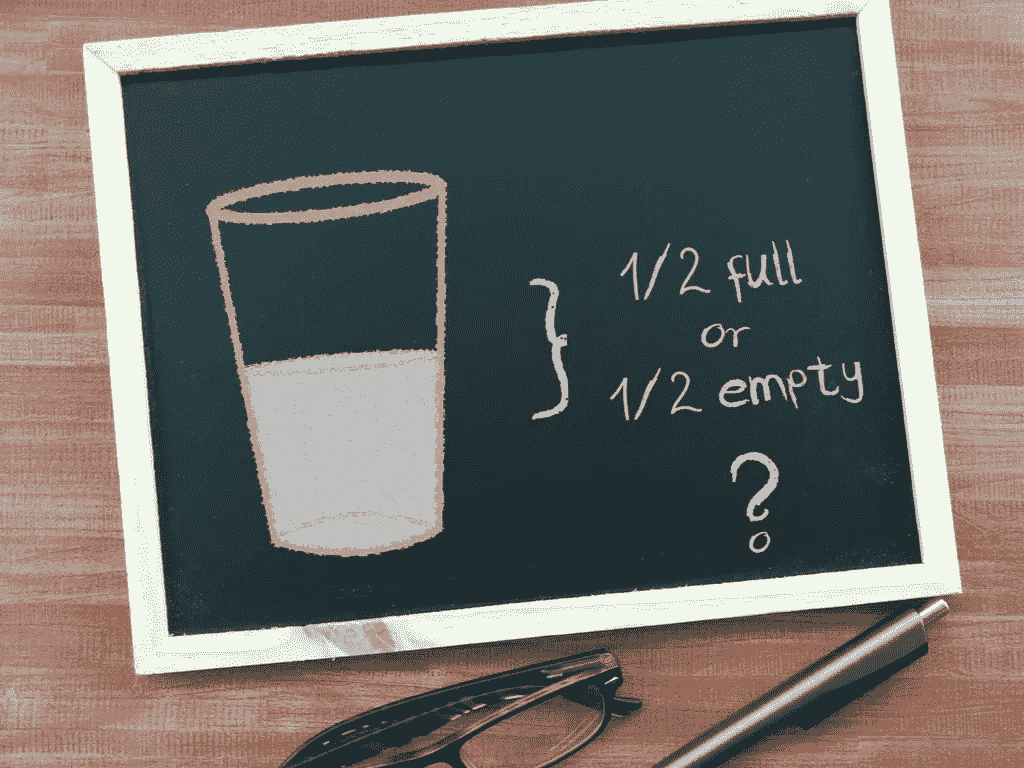 1/2 full
or
1/2 empty
?